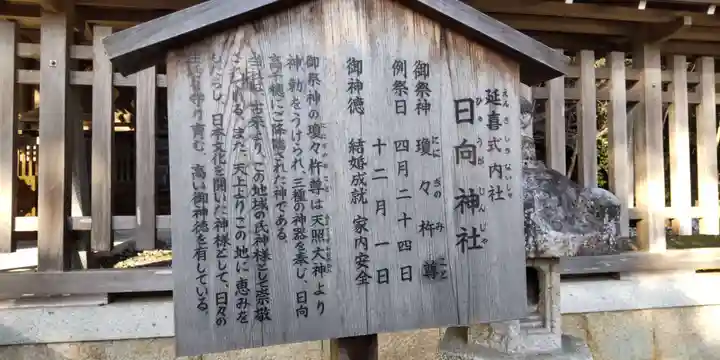 延喜式内社
えんぎしきないしゃ
日向神社
ひゅうがじんじゃ
御祭神 瓊々杵尊
ににぎのみこと
例祭日 四月二十四日
十二月一日
御神徳 結婚成就 家内安全
御祭神の瓊々杵尊は天照大神より
神勅をうけられ、三種の神器を奉し、日向
高千穂にご降臨された神である。
当社は、古来より、この地域の氏神様として崇敬
されている。また、天上よりこの地に恵みを
もたらし、日本文化を開いた神様として、日々の
生活を守り育む、高い御神徳を有している。